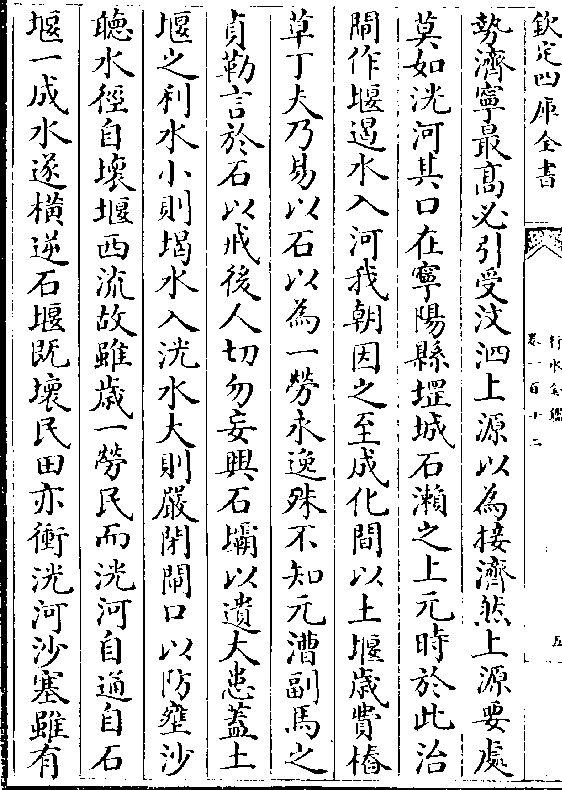 欽定四庫全書
行水金鑑
卷一百十二
五
勢濟寧最髙必引受汶泗上源以為接濟然上源要處
莫如洸河其口在寧陽縣堽城石瀬之上元時於此治
閘作堰遏水入河我朝因之至成化間以土堰歳費樁
草丁夫乃易以石以為一勞永逸殊不知元漕副馬之
貞勒言於石以戒後人切勿妄興石壩以遺大患葢土
堰之利水小則堨水入洸水大則嚴閉閘口以防壅沙
聽水徑自壊堰西流故雖歳一勞民而洸河自通自石
堰一成水遂橫逆石堰既壊民田亦衝洸河沙塞雖有